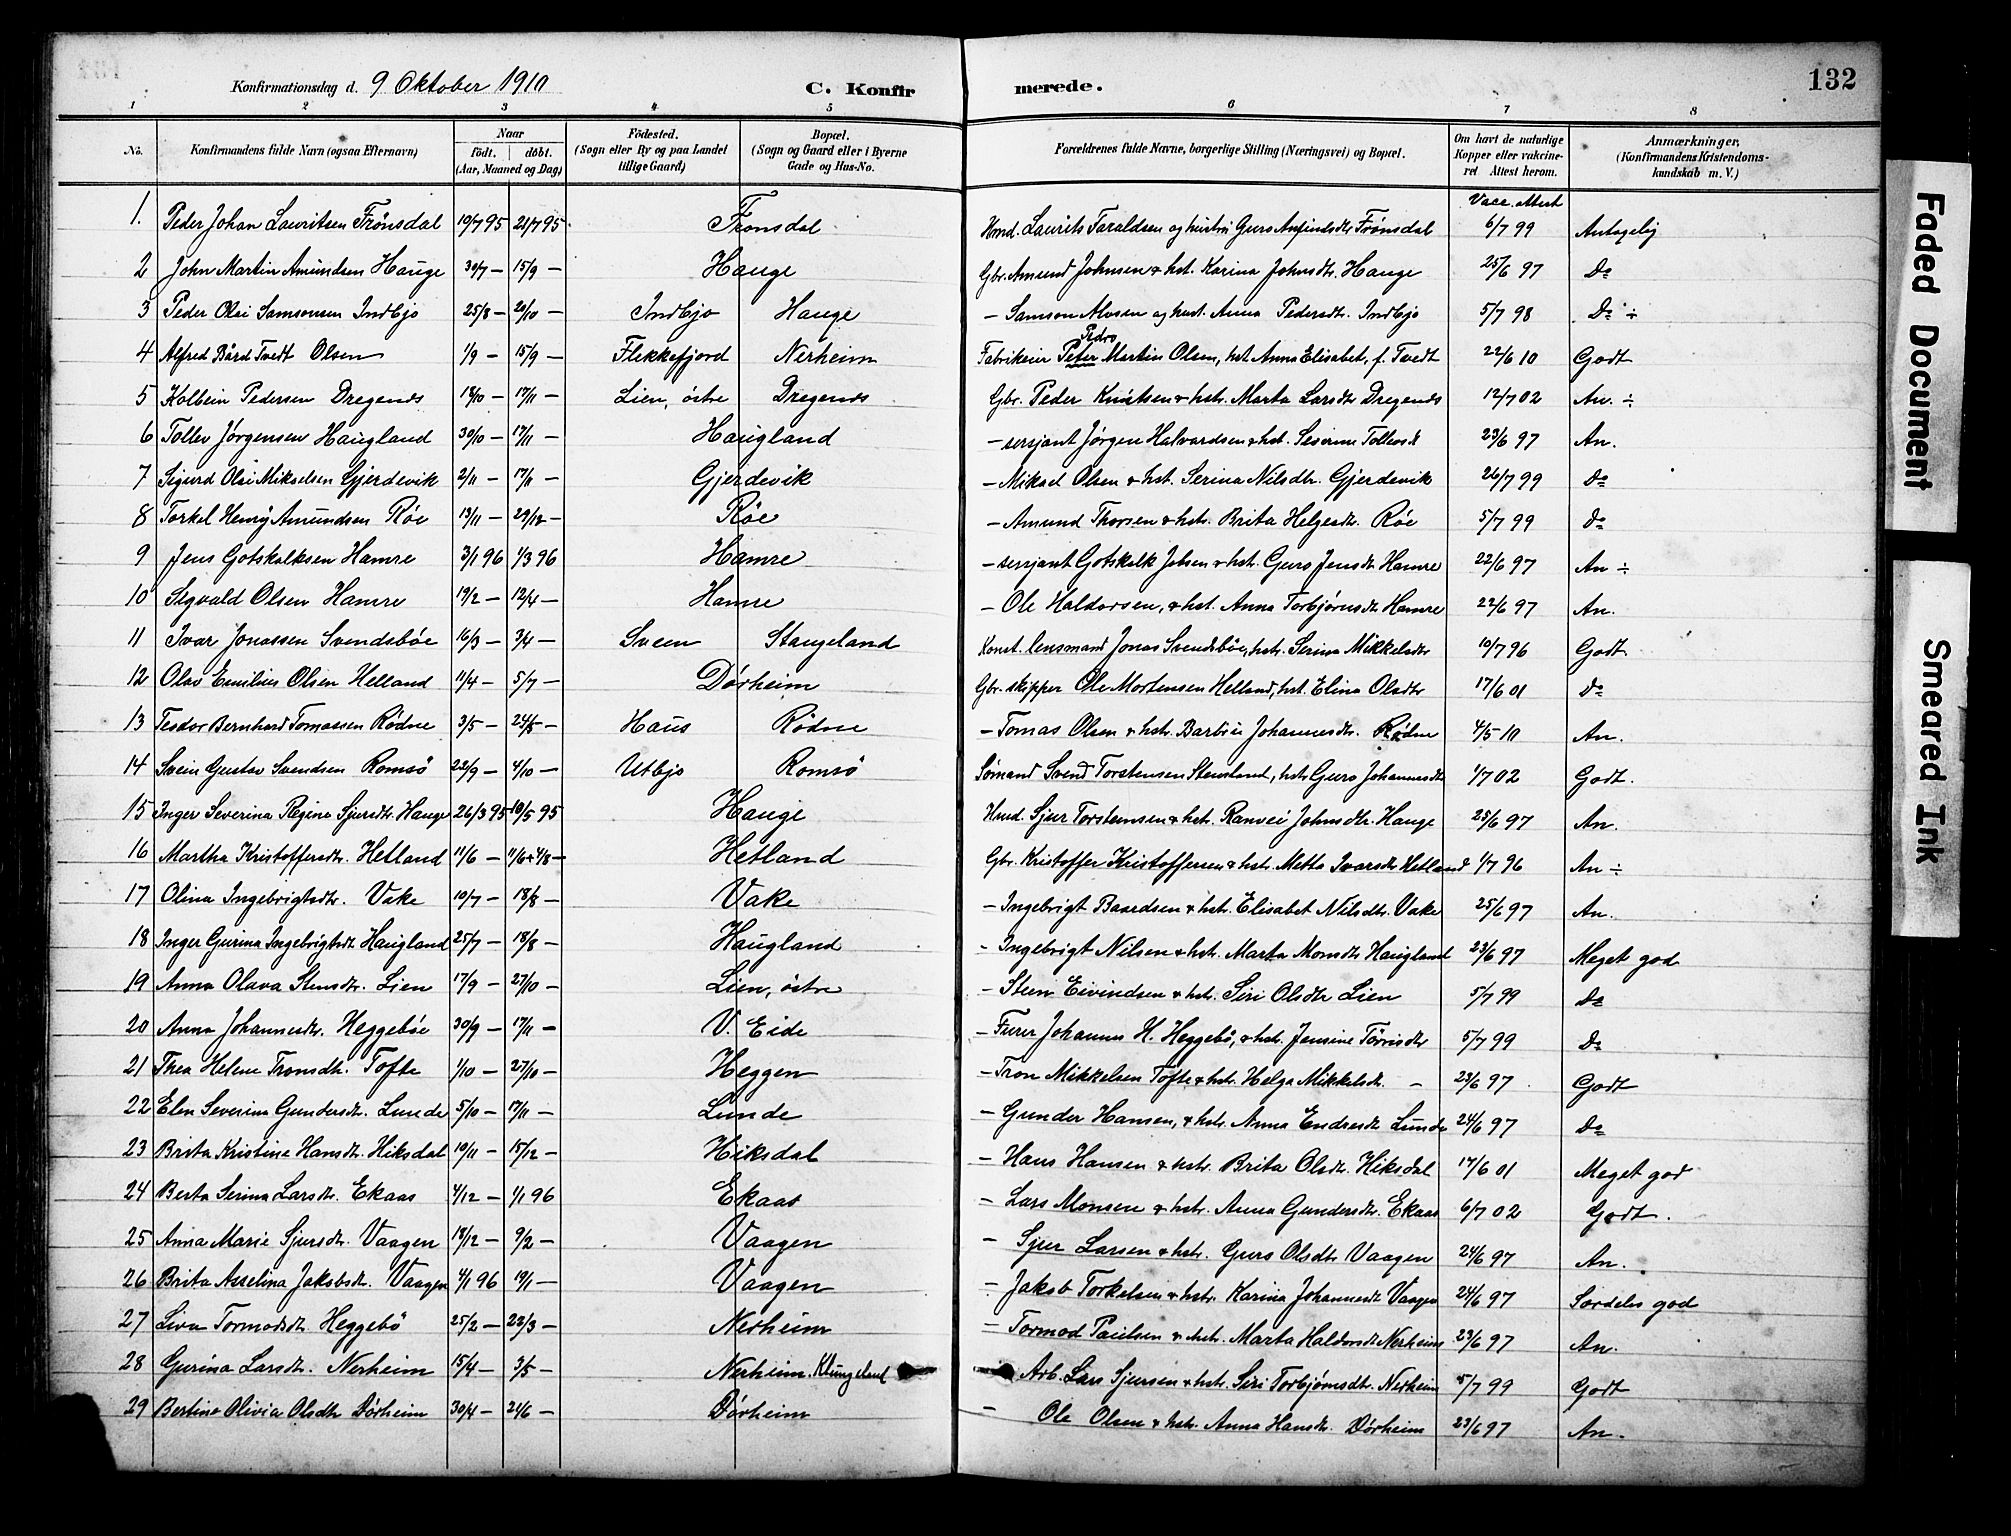 Konfirmationsdag d. 9 Oktober 1910 C. Konfirmerede. 132
1 2 3 4 5 6 7 8
No. Konfirmandens fulde Navn (ogsaa Efternavn) Naar født. døbt. (Aar, Maaned og Dag) Fødested. (Sogn eller By og paa Landet tillige Gaard) Bopæl. (Sogn og Gaard eller i Byerne Gade og Hus-No. Forældrenes fulde Navne, borgerlige Stilling (Næringsvei) og Bopæl. Om havt de naturlige Kopper eller vakcineret Attest herom. Anmærkninger, (Konfirmandens Kristendomskundskab m. V.)
Vacc. attest
1. Peder Johan Lauritsen Frønsdal 10/7 95 21/7 95 Frønsdal Hmd. Laurits Taraldsen og hustru Guro Anfindsdtr Frønsdal 6/7 99 Antagelig
2 John Martin Amundsen Hauge 30/7 — 15/9 — Hauge Gbr. Amund Johnsen & hst. Karina Johnsdtr. Hauge 25/6 97 Do
3 Peder Olai Samsonsen Indbjo 25/8 — 20/10 — Indbjo Hauge — Samson Alvsen og hust. Anna Pedersdtr. Indbjo 5/7 98 Do ÷
4 Alfred Bård Tvedt Olsen 1/9 — 15/9 — Flekkefjord Nerheim Fabrikeier Peter Pedro Martin Olsen, hst. Anna Elisabet, f. Tvedt 22/6 10 Godt
5 Kolbein Pedersen Dregends 18/10 — 17/11 — Lien, østre Dregends Gbr. Peder Knutsen & hstr. Marta Larsdtr Dregends 12/7 02 An. ÷
6 Tollev Jørgensen Haugland 30/10 — 17/11 — Haugland — sersjant Jørgen Halvardsen & hst. Severine Tollevsdt 23/6 97 An.
7 Sigurd Olai Mikselsen Gjerdevik 2/11 — 17/11 — Gjerdevik — Miksel Olsen & hst. Serina Nilsdtr. Gjerdevik 26/7 99 Do
8 Torkel Henry Amundsen Røe 13/11 — 29/12 — Røe — Amund Thorsen & hstr. Brita Helgesdtr. Røe 5/7 99 Do
9 Jens Gotskalksen Hamre 3/1 96 1/3 96 Hamre — sersjant Gotskalk Jobsen & hstr. Guro Jensdtr Hamre 22/6 97 An ÷
10 Sigvald Olsen Hamre 19/2 — 12/4 — Hamre — Ole Haldorsen, & hst. Anna Torbjørnsdtr Hamre 22/6 97 An.
11 Ivar Jonassen Svendsbøe 16/3 — 3/4 — Sveen Stangeland Konst. lensmand Jonas Svendsbøe, hstr. Serina Mikkelsdtr 10/7 96 Godt
12 Olav Emilius Olsen Helland 11/4 — 5/7 — Dørheim Gbr. skipper Ole Mortensen Helland, hst. Elina Olsdtr 17/6 01 Do
13 Teodor Bernhard Tomassen Rødne 3/5 — 24/5 — Haus Rødne — Tomas Olsen & hstr. Barbra Johannesdtr. Rødne 4/5 10 An.
14 Svein Gustav Svendsen Romsø 22/9 — 4/10 — Utbjo Romsø Sømand Svend Torstensen Stensland, hstr Guro Johannesdtr 1/7 02 Godt.
15 Inger Severina Regine Sjursdtr. Hauge 26/3 95 18/5 95 Hauge Hmd. Sjur Torstensen & hst. Ranvei Johnsdtr. Hauge 25/6 97 An.
16 Martha Kristoffersdtr. Hetland 11/6 — 11/6 + 4/8 — Hetland Gbr. Kristoffer Kristoffersen & hstr. Metta Ivarsdtr Hetland 1/7 96 An ÷
17 Olina Ingebrigtsdtr. Vake 10/7 — 18/8 — Vake — Ingebrigt Baardsen & hstr. Elisabet Nilsdtr. Vake 25/6 97 An.
18 Inger Gurina Ingebrigtsdt. Haugland 25/7 — 18/8 — Haugland — Ingebrigt Nilsen & hstr. Marta Monsdtr Haugland 23/6 97 Meget god
19 Anna Olava Stensdtr. Lien 17/9 — 27/10 — Lien, østre — Steen Eivindsen & hstr. Siri Olsdtr Lien 5/7 99 Do
20 Anna Johannesdtr. Heggebøe 30/9 — 17/11 — V. Eide — Furer Johannes H. Heggebø, & hstr. Jensine Tørrisdtr 5/7 99 Do
21 Thea Helene Tronsdtr. Tofte 1/10 — 27/10 — Heggen — Tron Mikkelsen Tofte & hstr. Helga Mikkelsdt. — 23/6 97 Godt
22 Elen Severina Gundersdtr. Lunde 5/10 — 17/11 — Lunde — Gunder Hansen, & hstr. Anna Endresdt Lunde 24/6 97 Do
23 Brita Kristine Hansdtr. Hiksdal 10/11 — 15/12 — Hiksdal — Hans Hansen & hstr. Brita Olsdtr. Hiksdal 17/6 01 Meget god
24 Berta Serina Larsdtr. Ekaas 4/12 — 1/1 96 Ekaas — Lars Monsen & hstr. Anna Gundersdtr. Ekaas 6/7 02 Godt.
25 Anna Marie Sjursdtr. Vaagen 18/12 — 9/2 — Vaagen — Sjur Larsen & hstr. Guro Olsdtr Vaagen 24/6 97 An.
26 Brita Asselina Jakobsdt. Vaagen 4/1 96 19/1 — Vaagen — Jakob Torkelsen & hstr. Karina Johannesdt Vaagen 24/6 97 Særdeles god
27 Liva Tormodsdt. Heggebø 25/2 — 22/3 — Nerheim — Tormod Paulsen & hstr. Marta Haldorsdt Nerheim 23/6 97 An.
28 Gurina Larsdtr. Nerheim 15/4 — 3/5 — Nerheim. Klungeland Arb. Lars Sjursen & hstr. Siri Torbjørnsdtr. Nerheim 5/7 99 Godt
29 Bertine Olivia Olsdtr Dørheim 30/4 — 21/6 — Dørheim — Ole Olsen & hstr. Anna Hansdtr. Dørheim 23/6 97 An.
Faded Document
Smeared Ink